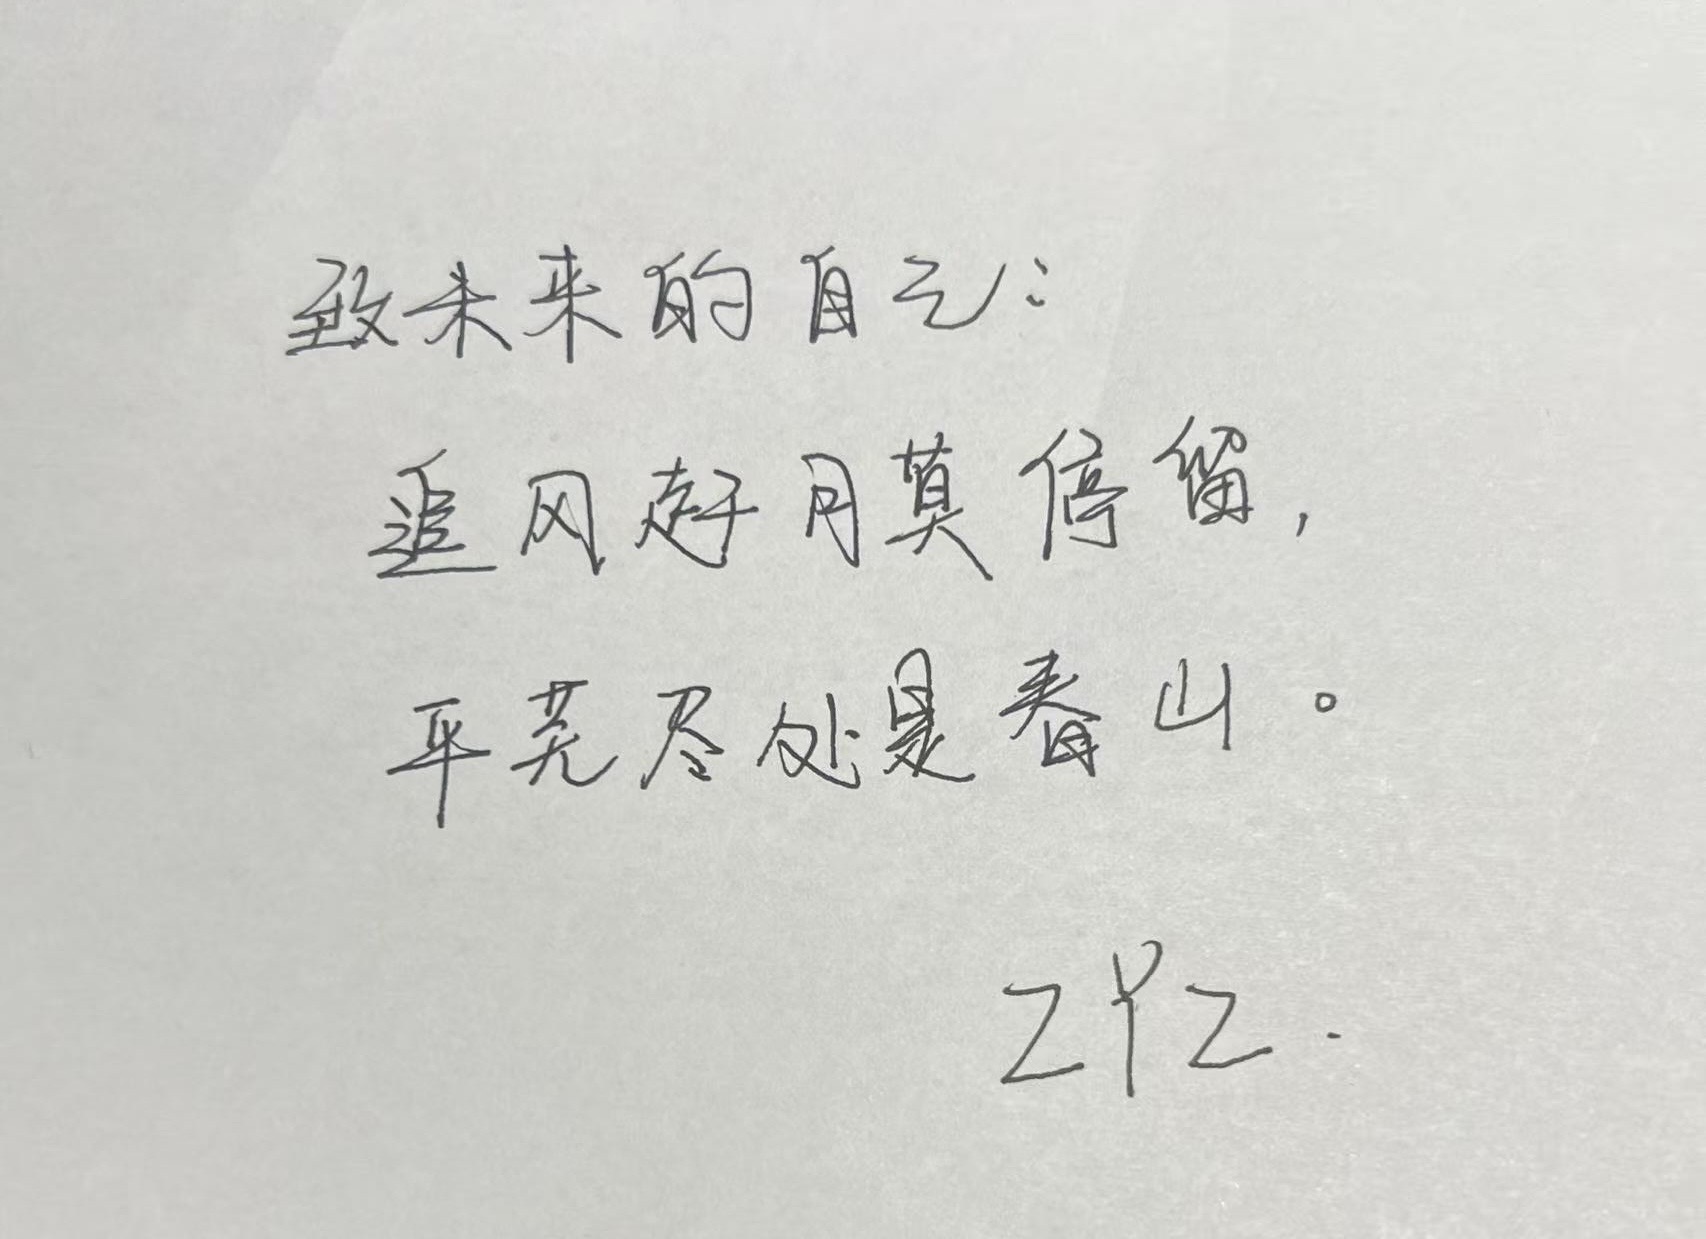 致未来的自己：
追风赶月莫停留，
平芜尽处是春山。
ZYZ.